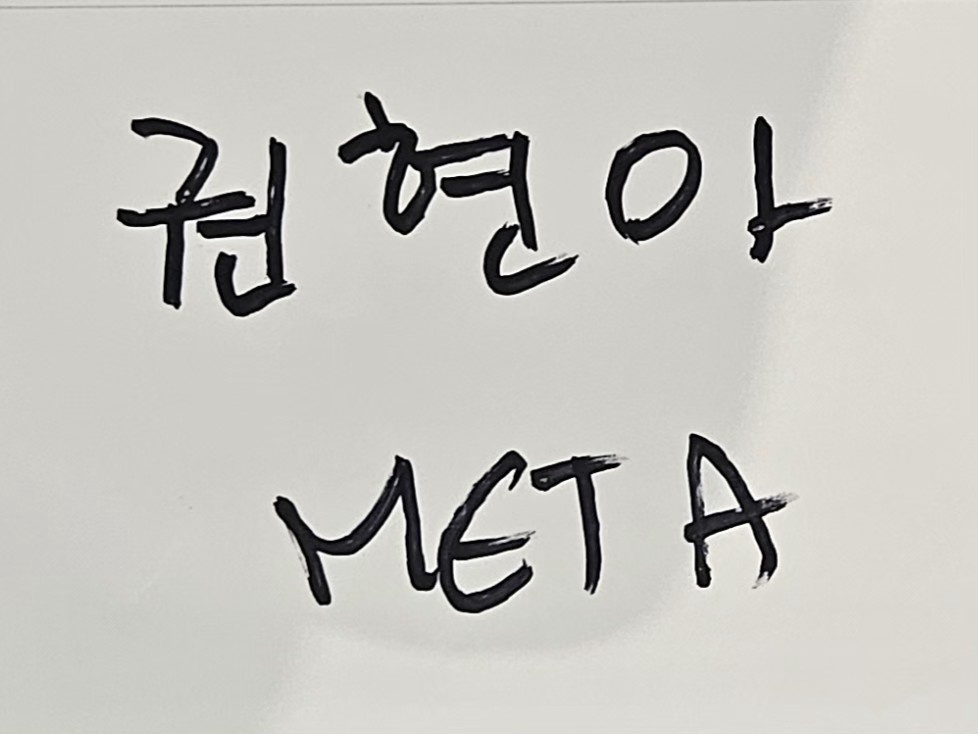 권현아
META